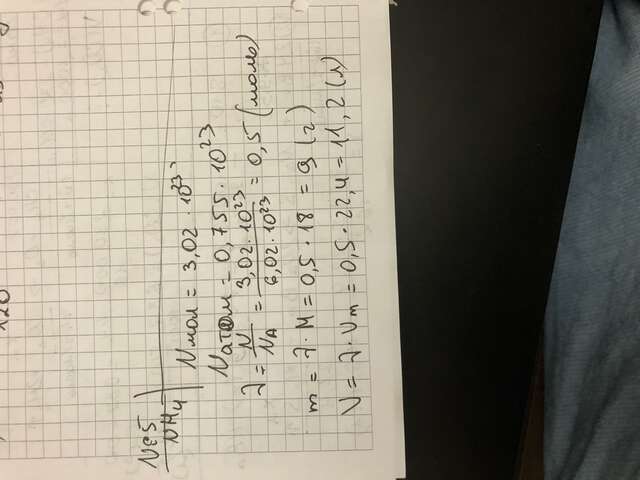 №5
NH4
Nмол = 3,02 · 10²³
Nатом = 0,755 · 10²³
λ = N/NA = 3,02·10²³/6,02·10²³ = 0,5 (моль)
m = λ · M = 0,5 · 18 = 9 (г)
V = λ · Vm = 0,5 · 22,4 = 11,2 (л)